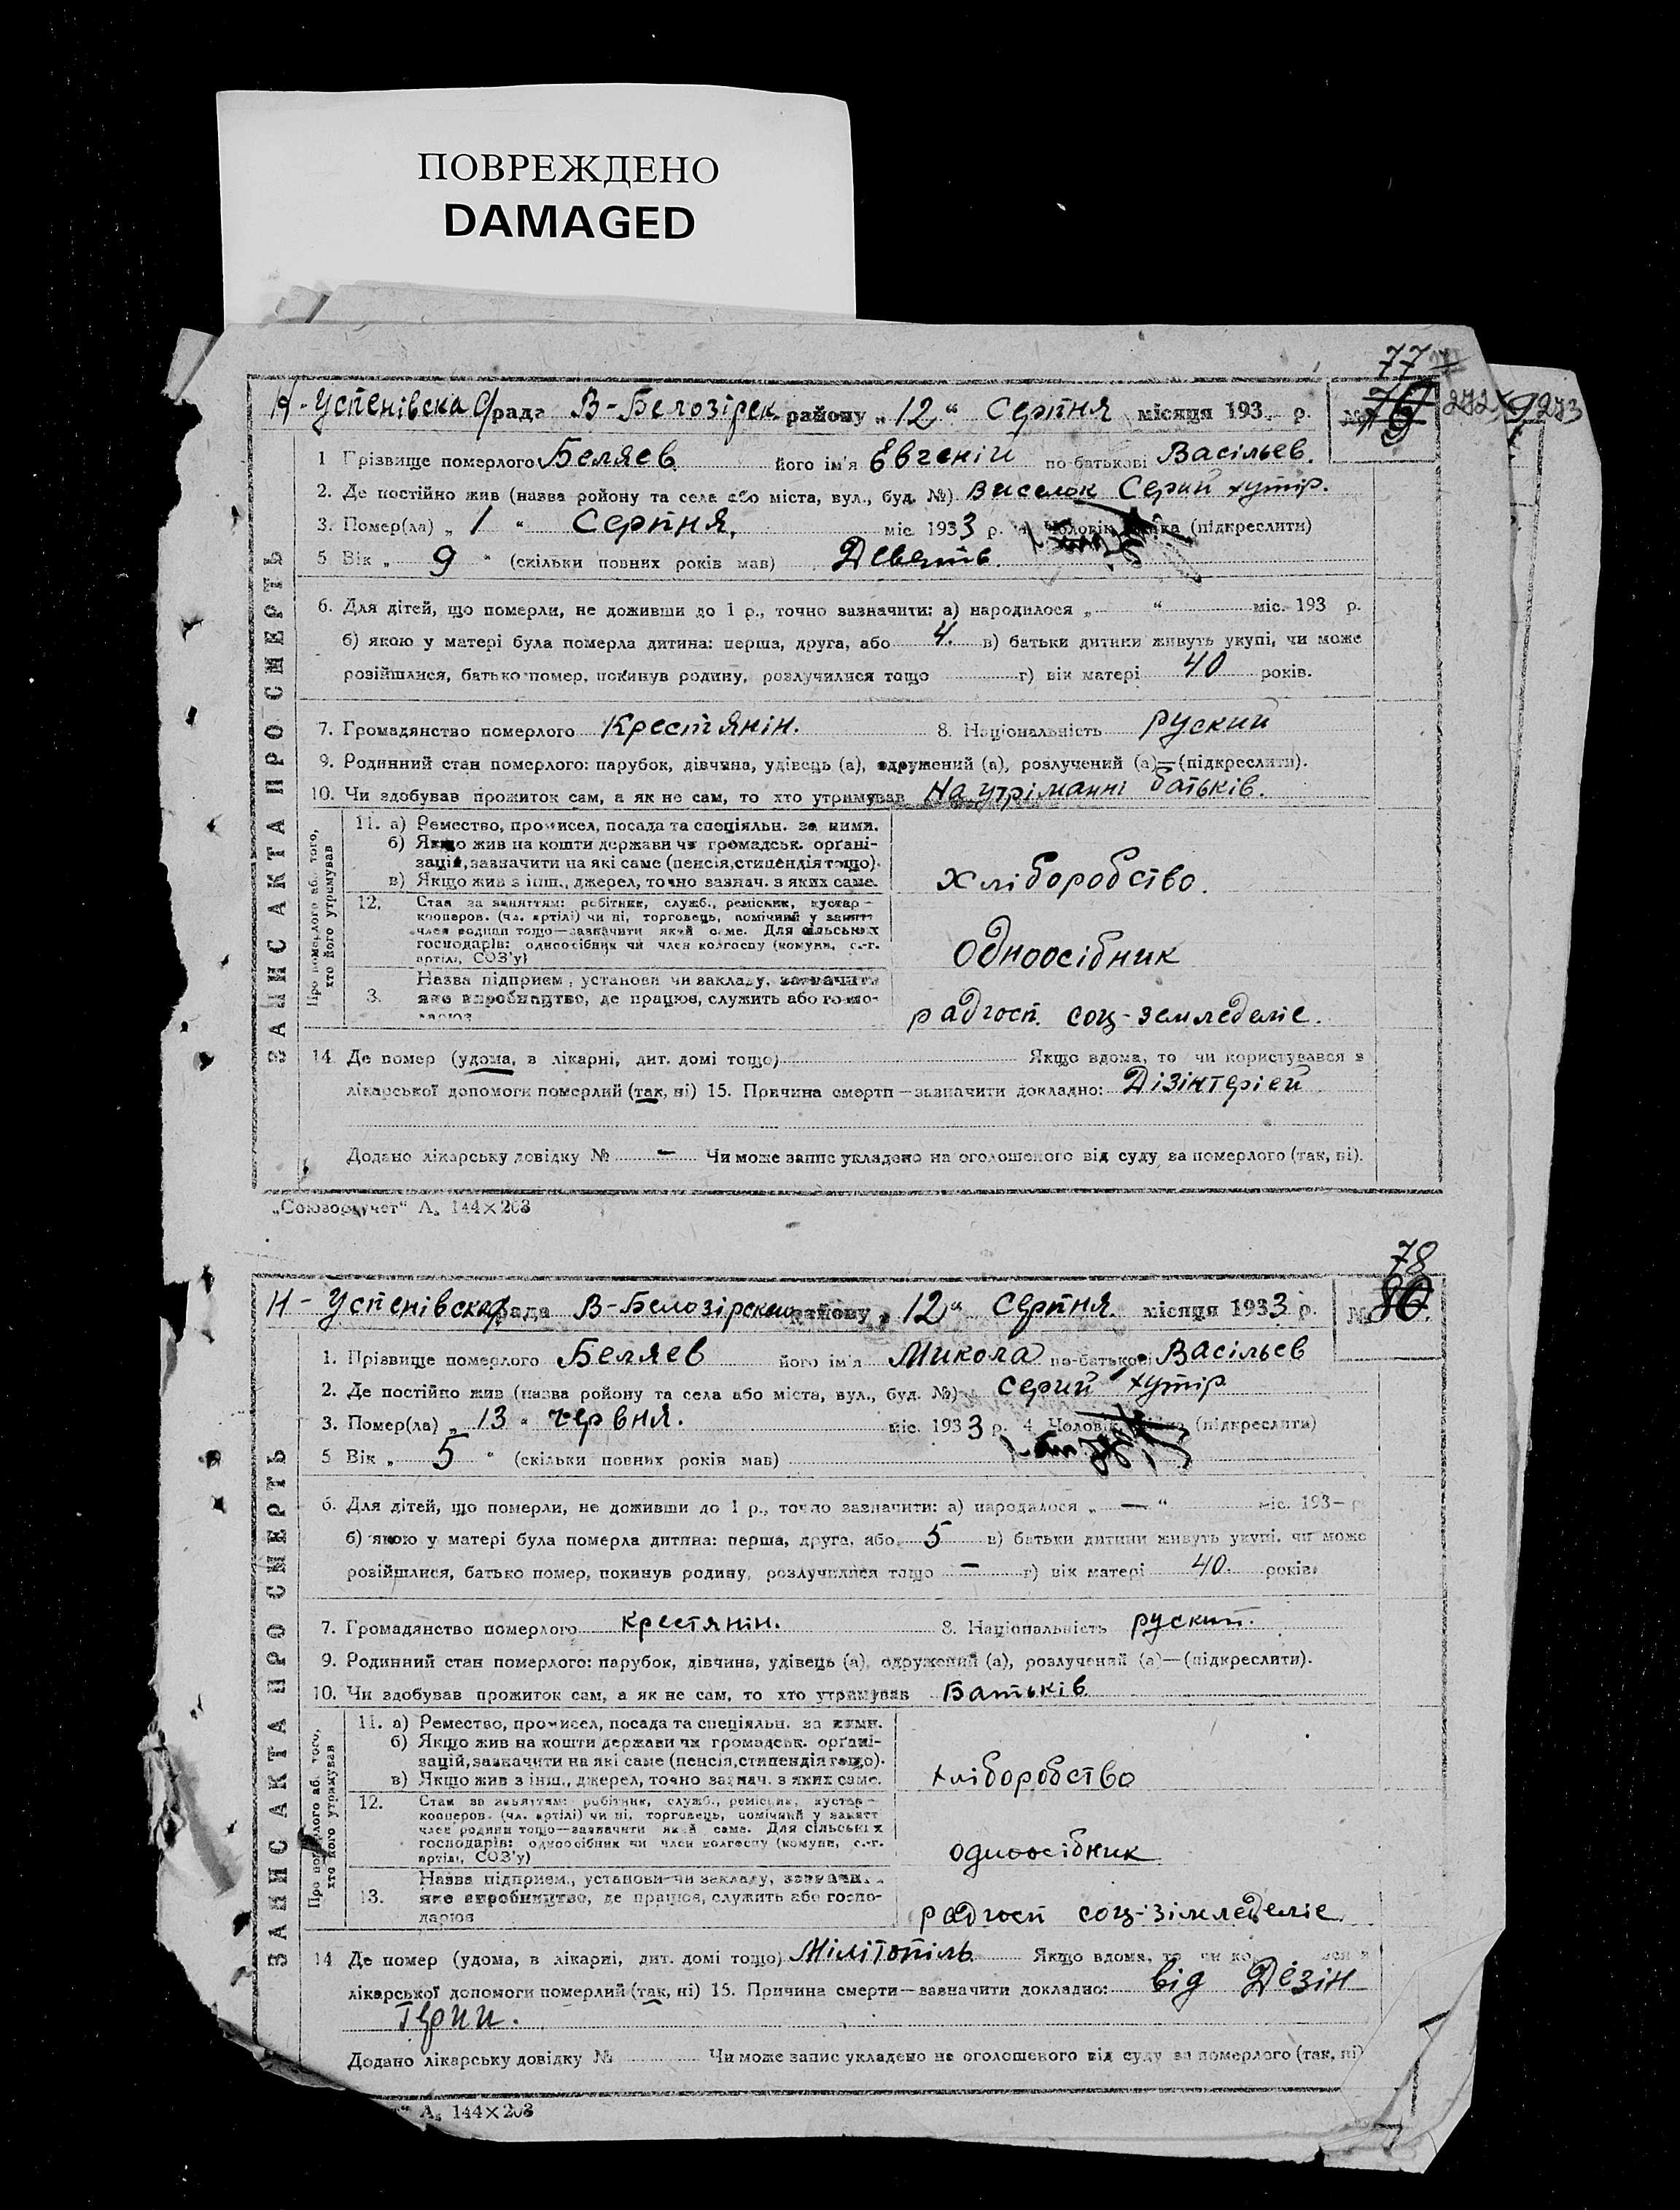 ПОВРЕЖДЕНО
DAMAGED
77
Н-Успенівска С/рада В-Белозірск. району „12“ Серпня місяця 193 р. № 79 272 273
1 Прізвище померлого Беляев його ім'я Евгеній по-батькові Васільев.
2. Де постійно жив (назва ройону та села або міста, вул., буд. №) Виселок Серий хутір.
3. Помер(ла) „1“ Серпня. міс. 1933 р. Чоловік (підкреслити)
5 Вік „9“ (скільки повних років мав) Девять.
6. Для дітей, що померли, не доживши до 1 р., точно зазначити: а) народилося „ “ міс. 193 р.
б) якою у матері була померла дитина: перша, друга, або 4. в) батьки дитини живуть укупі, чи може
розійшлися, батько помер, покинув родину, розлучилися тощо г) вік матері 40 років.
7. Громадянство померлого Крестянін. 8. Національність руский
9. Родинний стан померлого: парубок, дівчина, удівець (а), одружений (а), розлучений (а)—(підкреслити).
10. Чи здобував прожиток сам, а як не сам, то хто утримував На утріманні батьків.
ЗАПИС АКТА ПРО СМЕРТЬ
Про померлого аб. того,
хто його утримував
11. а) Ремество, промисел, посада та спеціяльн. за ними.
б) Якщо жив на кошти держави чи громадськ. орґані-
зацій, зазначити на які саме (пенсія, стипендія тощо).
в) Якщо жив з інш., джерел, точно зазнач. з яких саме.
хліборобство.
12. Стан за заняттям: робітник, служб., ремісник, кустар-
кооперов. (чл. артілі) чи ні, торговець, помічний у занятт
член родини тощо—зазначити який саме. Для сільських
господарів: одноосібник чи член колгоспу (комуни, с.-г.
артілі, СОЗ'у)
одноосібник
3. Назва підприєм., установи чи закладу, зазначити
яке виробництво, де працює, служить або госпо-
дарює
радгосп. соц-земледеліе.
14 Де помер (удома, в лікарні, дит. домі тощо) Якщо вдома, то чи користувався з
лікарської допомоги померлий (так, ні) 15. Причина смерти—зазначити докладно: Дізінтеріей
Додано лікарську довідку № — Чи може запис укладено на оголошеного від суду за померлого (так, ні).
„Союзоргучет“ А₅ 144×203
78
Н-Успенівска с/рада В-Белозірском району „12“ Серпня. місяця 1933 р. № 80.
1. Прізвище померлого Беляев його ім'я Микола по-батькові Васільев
2. Де постійно жив (назва ройону та села або міста, вул., буд. №) Серий хутір
3. Помер(ла) „13“ червня. міс. 1933 р. 4 Чоловік (підкреслити)
5 Вік „5“ (скільки повних років мав)
6. Для дітей, що померли, не доживши до 1 р., точно зазначити: а) народилося „—“ міс. 193– р
б) якою у матері була померла дитина: перша, друга, або 5 в) батьки дитини живуть укупі, чи може
розійшлися, батько помер, покинув родину, розлучилися тощо — г) вік матері 40. років
7. Громадянство померлого крестянін. 8. Національність руский.
9. Родинний стан померлого: парубок, дівчина, удівець (а), одружений (а), розлучений (а)—(підкреслити).
10. Чи здобував прожиток сам, а як не сам, то хто утримував Батьків
ЗАПИС АКТА ПРО СМЕРТЬ
Про померлого аб. того,
хто його утримував
11. а) Ремество, промисел, посада та спеціяльн. за ними.
б) Якщо жив на кошти держави чи громадськ. орґані-
зацій, зазначити на які саме (пенсія, стипендія тощо).
в) Якщо жив з інш., джерел, точно зазнач. з яких саме.
хліборобство
12. Стан за заняттям: робітник, служб., ремісник, кустар-
кооперов. (чл. артілі) чи ні, торговець, помічний у занятт
член родини тощо—зазначити який саме. Для сільських
господарів: одноосібник чи член колгоспу (комуни, с.-г.
артілі, СОЗ'у)
одноосібник
13. Назва підприєм., установи чи закладу, зазначи
яке виробництво, де працює, служить або госпо-
дарює
радгосп соц-зімледеліе.
14 Де помер (удома, в лікарні, дит. домі тощо) Мілітопіль Якщо вдома, то чи ко ся з
лікарської допомоги померлий (так, ні) 15. Причина смерти—зазначити докладно: від Дезін
терии.
Додано лікарську довідку № Чи може запис укладено на оголошеного від суду за померлого (так, ні)
т“ А₅ 144×203